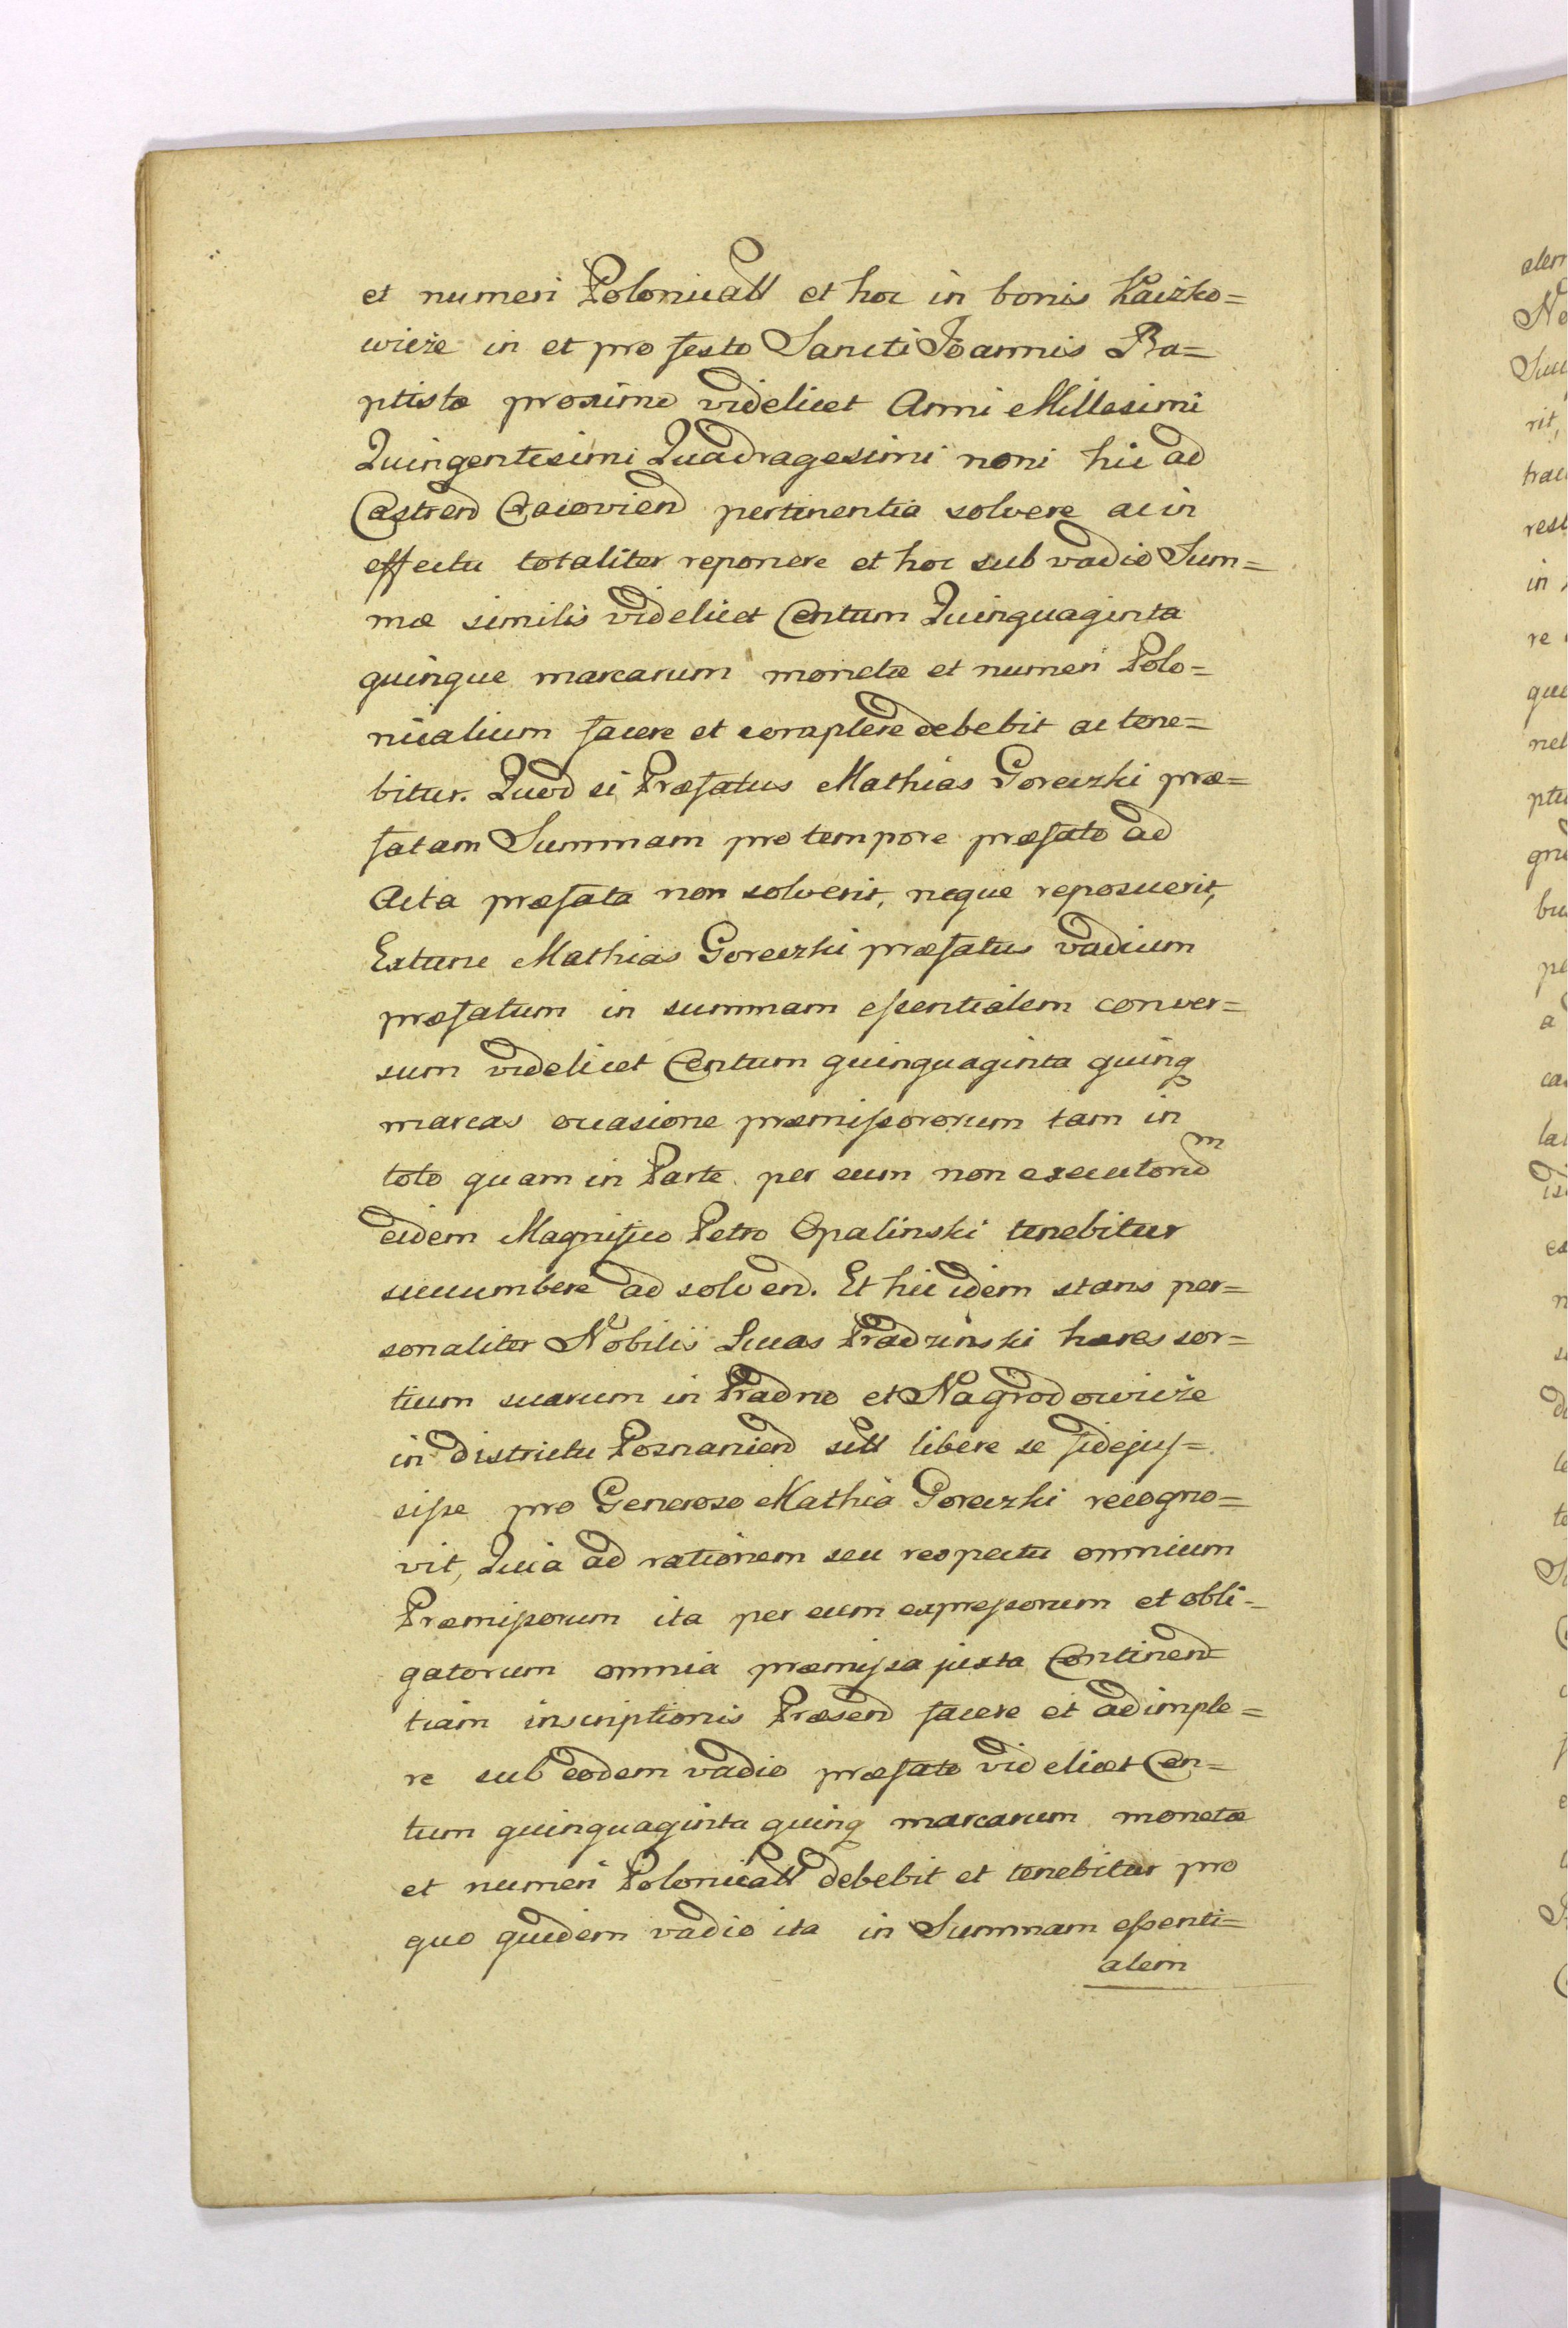 et numeri Polonicall et hoc in bonis Kaczko=
wicze in et pro festo Sancti Joannis Ba=
ptistæ proxime videlicet Anni Millesimi
Quingentesimi Quadragesimi noni hic ad
Castren Cracovien pertinentia solvere ac in
effectu totaliter reponere et hoc sub vadio Sum=
mæ similis videlicet Centum Quinquaginta
quinque marcarum monetæ et numeri Polo=
nicalium facere et complere debebit ac tene=
bitur. Quod si Præfatus Mathias Goreczki præ=
fatam Summam pro tempore præfato ad
Acta præfata non solverit, neque reposuerit,
Extunc Mathias Goreczki præfatus vadium
præfatum in summam essentialem conver=
sum videlicet Centum quinquaginta quinq
marcas occasione præmissororum tam in
toto quam in Parte per eum non executorum
eidem Magnifico Petro Opalinski tenebitur
succumbere ad solven. Et hic idem stans per=
sonaliter Nobilis Lucas Prądzinski hæres sor=
tium suarum in Prądno et Nagrodowicze
in districtu Posnanien sitt libere se fidejus=
sisse pro Generoso Mathia Goreczki recogno=
vit, Quia ad rationem seu respectu omnium
Præmissorum ita per eum expressorum et obli=
gatorum omnia præmissa juxta Continen=
tiam inscriptionis Præsen facere et adimple=
re sub eodem vadio præfato videlicet Cen=
tum quinquaginta quinq marcarum monetæ
et numeri Polonicall debebit et tenebitur pro
quo quidem vadio ita in Summam essenti=
alem